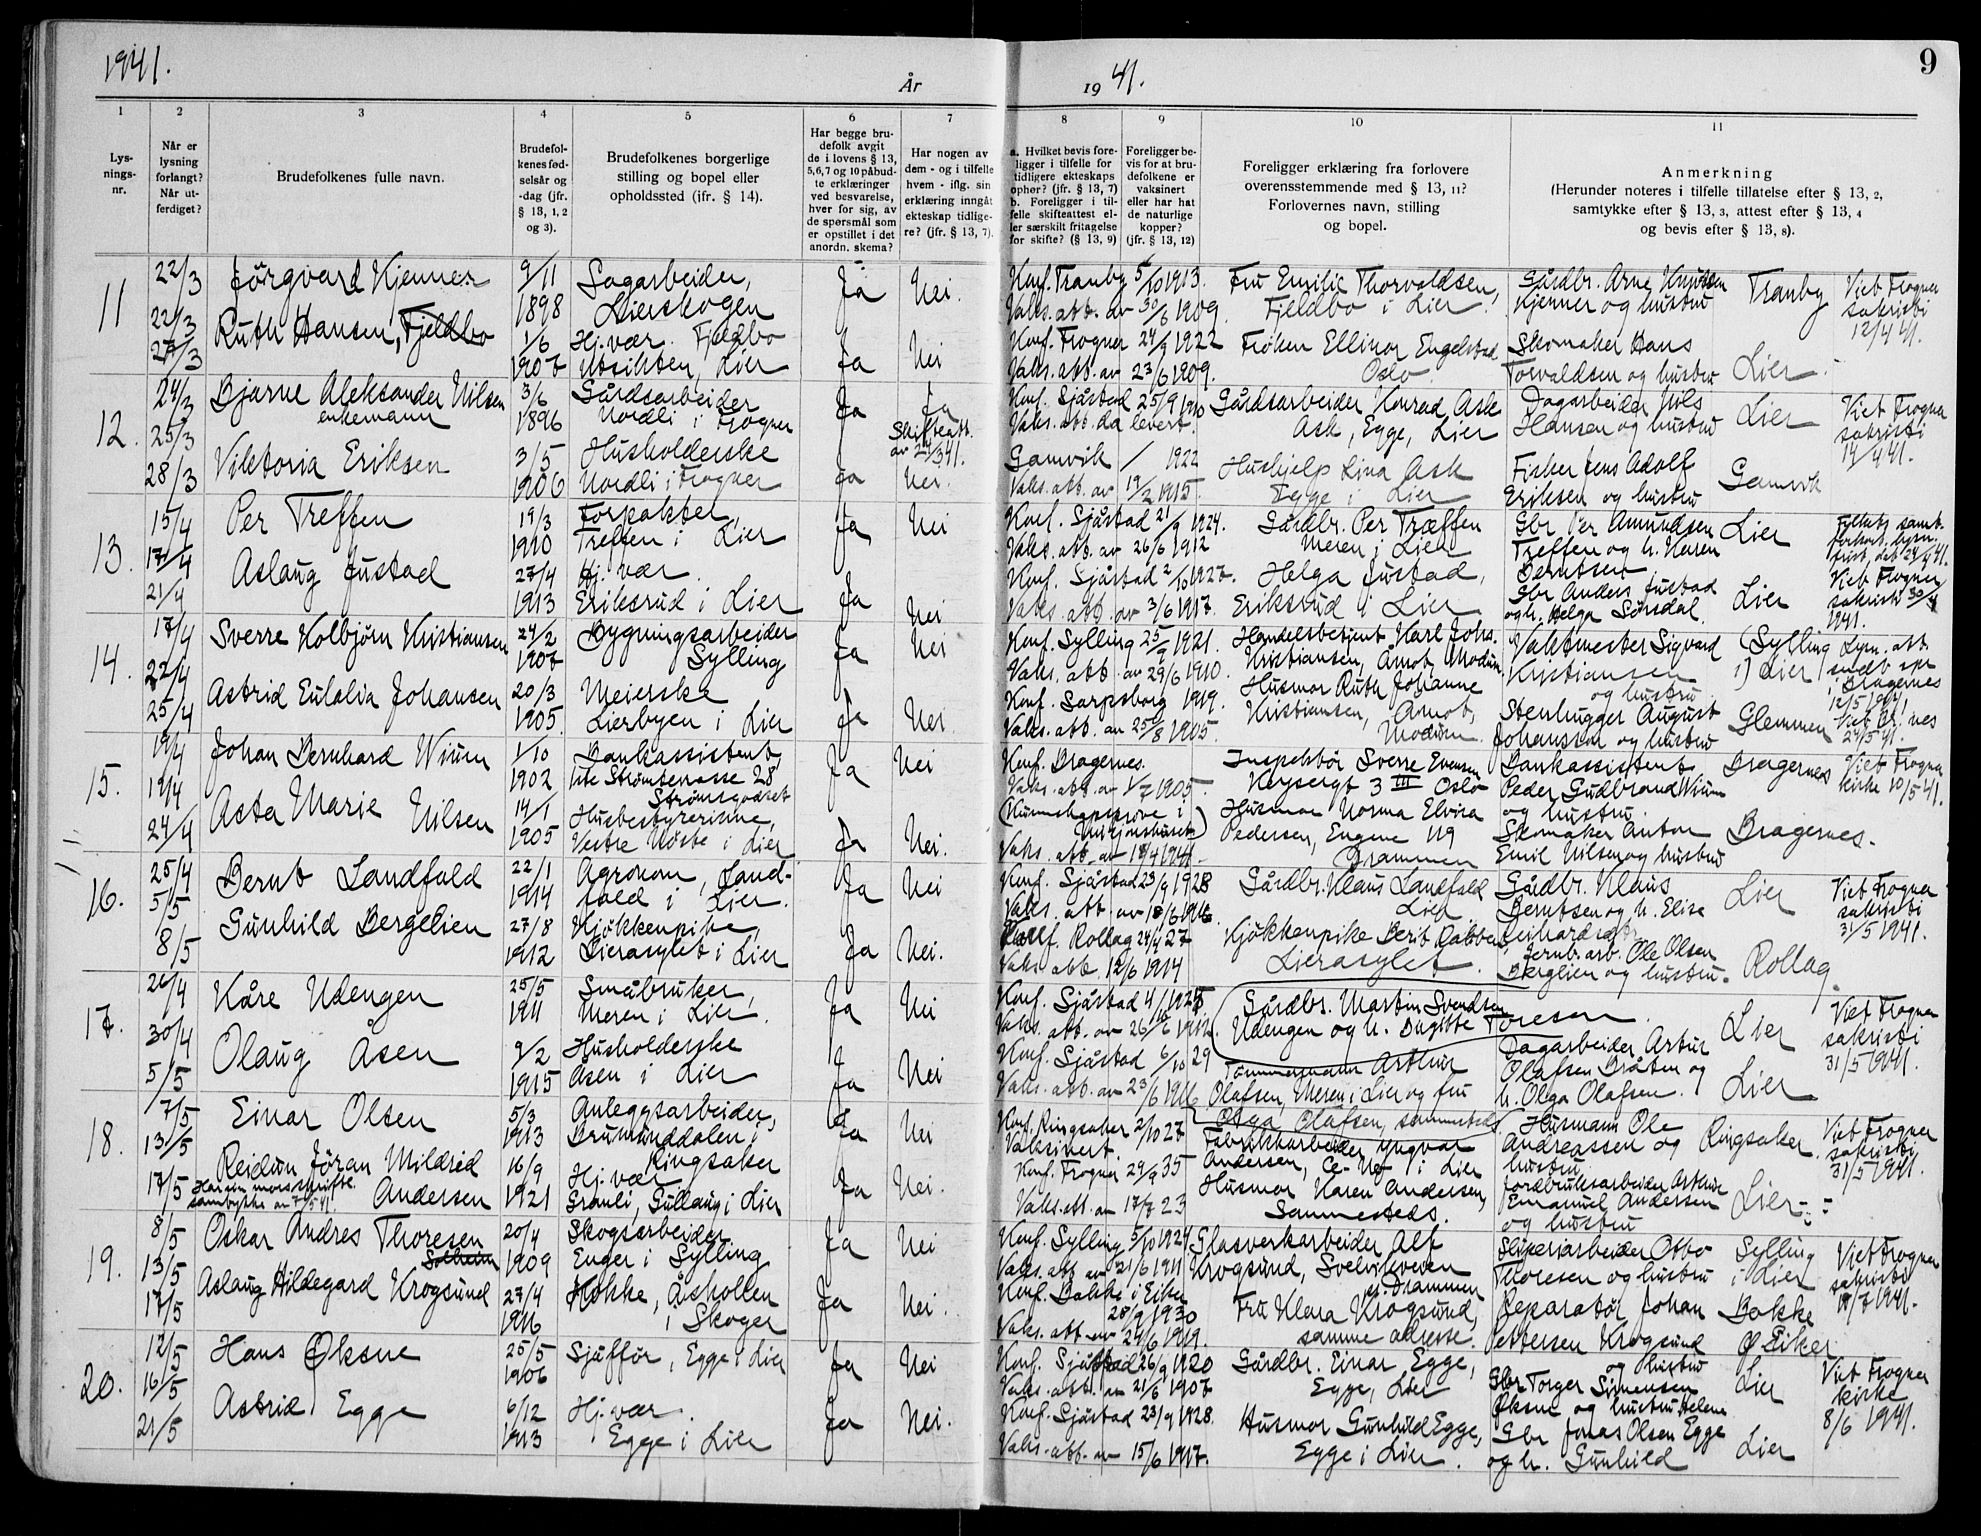 1941.
År
19 41.
9
1
2
3
4
5
6
7
8
9
10
11
Lys-
nings-
nr.
Når er
lysning
forlangt?
Når ut-
ferdiget?
Brudefolkenes fulle navn.
Brudefol-
kenes fød-
selsår og
-dag (jfr.
§ 13, 1, 2
og 3).
Brudefolkenes borgerlige
stilling og bopel eller
opholdssted (jfr. § 14).
Har begge bru-
defolk avgit
de i lovens § 13,
5,6,7 og 10 påbud-
te erklæringer
ved besvarelse,
hver for sig, av
de spørsmål som
er opstillet i det
anordn. skema?
Har nogen av
dem - og i tilfelle
hvem - iflg. sin
erklæring inngåt
ekteskap tidlige-
re? (jfr. § 13, 7).
a. Hvilket bevis fore-
ligger i tilfelle for
tidligere ekteskaps
ophør? (jfr. § 13, 7)
b. Foreligger i til-
felle skifteattest el-
ler særskilt fritagelse
for skifte? (§ 13, 9)
Foreligger be-
vis for at bru-
defolkene er
vaksinert
eller har hat
de naturlige
kopper?
(jfr. § 13, 12)
Foreligger erklæring fra forlovere
overensstemmende med § 13, 11?
Forlovernes navn, stilling
og bopel.
Anmerkning
(Herunder noteres i tilfelle tillatelse efter § 13, 2,
samtykke efter § 13, 3, attest efter § 13, 4
og bevis efter § 13, 8).
11
22/3
22/3
27/3
Jørgvard Kjenner
9/11
1898
Sagarbeider,
Lierskogen
Ja
Nei.
Konf. Tranby 5/10 1913.
Vaks. att. av 30/6 1909.
Fru Emilie Thorvaldsen,
Fjeldbo i Lier
Gårdbr. Arne Knudsen
Kjenner og hustru
Tranby
Viet Frogner
sakristi
12/4 41.
Ruth Hansen, Fjeldbo
1/6
1907
Hj. vær. Fjeldbo
Utsikten, Lier
Ja
Nei
Konf. Frogner 24/9 1922
Vaks. att. av 23/6 1909.
Frøken Ellinor Engelstad
Oslo.
Skomaker Hans
Torvaldsen og hustru
Lier.
12.
24/3
25/3
28/3
Bjarne Aleksander Nilsen
enkemann
3/6
1896
Gårdsarbeider
Nordli i Frogner
Ja
Ja
Skifteatt.
av 21/3 41.
Konf. Sjåstad 25/9 1910
Vaks. att. da levert.
Gårdsarbeider Konrad Ask
Ask, Egge, Lier
Dagarbeider Nils
Hansen og hustru
Lier
Viet Frogner
sakristi
14/4 41.
Viktoria Eriksen
3/5
1906
Husholderske
Nordli i Frogner
Ja
Nei.
Gamvik / 1922
Vaks. att. av 19/2 1915.
Hushjelp Lina Ask
Egge i Lier
Fisker Jens Adolf
Eriksen og hustru
Gamvik
13.
15/4
17/4
21/4
Per Treffen
19/3
1910
Forpakter,
Treffen i Lier
Ja
Nei
Konf. Sjåstad 21/9 1924.
Vaks. att. av 26/6 1912
Gårdbr. Per Træffen
Meren i Lier
Gbr Per Amundsen
Treffen og h. Karen
Berntsen
Lier
Aslaug Justad
27/4
1913
Hj. vær.
Eriksrud i Lier
Ja
Nei
Konf. Sjåstad 2/10 1927.
Vaks. att. av 3/6 1917.
Helga Justad,
Eriksrud i Lier
Gbr Anders Justad
og h. Helga Sørsdal.
Lier
Viet Frogner
sakristi 30/4
1941.
14.
17/4
22/4
25/4
Sverre Kolbjørn Kristiansen
24/2
1907
Bygningsarbeider
Sylling
Ja
Nei
Konf. Sylling 25/9 1921.
Vaks. att. av 29/6 1910.
Handelsbetjent Karl Johs.
Kristiansen, Åmot, Modum
Vaktmester Sigvard
Kristiansen
og hustru
(Sylling
i) Lier
Lysn. att.
sendt spr
i Bragernes
12/5 1941
Astrid Eulalia Johansen
20/3
1905.
Meierske
Lierbyen i Lier
Ja
Nei.
Konf. Sarpsborg 1919.
Vaks. att. av 25/8 1905.
Husmor Ruth Johanne
Kristiansen, Åmot,
Modum.
Stenhugger August
Johansen og hustru
Glemmen
24/5 41.
15.
19/4
19/4
24/4
Johan Bernhard Wium
1/10
1902
Bankassistent,
Strømterrasse 28,
Strømsgodset
Ja
Nei
Konf. Bragernes.
Vaks. att. av 1/7 1905.
Inspektør Sverre Evensen
Keysersgt 3 III Oslo
Bankassistent
Peder Gudbrand Wium
og hustru
Bragernes
Viet Frogner
kirke 10/5 41.
Asta Marie Nilsen
14/1
1905
Husbestyrerinne,
Vestre Nøste i Lier
Ja
Nei.
(Kunnskapsprøve i
Misjonshuset)
Vaks. att. av 18/4 1941.
Husmor Norma Elvira
Pedersen, Engene 119
Drammen
Skomaker Anton
Emil Nilsen og hustru
Bragernes.
16.
25/4
5/5
8/5
Bernt Landfald
22/1
1914
Agronom, Land-
fald i Lier.
Ja
Nei
Konf. Sjåstad 23/9 1928
Vaks. att. av 18/6 1916.
Gårdbr. Klaus Landfald
Lier
Gårdbr. Klaus
Berntsen og h. Elise
Lier
Viet Frogner
sakristi
31/5 1941.
Gunhild Bergelien
27/8
1912
Kjøkkenpike,
Lierasylet i Lier
Ja
Nei.
Konf. Rollag 24/4 27
Vaks. att. 12/6 1914
Kjøkkenpike Berit
Lierasylet.
Jernb. arb. Ole Olsen
Berglien og hustru.
Rollag
17.
26/4
30/4
5/5
Kåre Udengen
25/5
1911
Småbruker,
Meren i Lier.
Ja
Nei
Konf. Sjåstad 4/10 1925
Vaks. att. av 26/6 1912.
Gårdbr. Martin Svendsen
Udengen og h. Birgitte Toresen.
Lier
Viet Frogner
sakristi
31/5 1941.
Olaug Åsen
9/2
1915
Husholderske
Åsen i Lier
Ja
Nei
Konf. Sjåstad 6/10 29
Vaks. att. av 23/6 1916
Tømmermann Arthur
Olafsen, Meren i Lier og fru
Olga Olafsen, sammesteds.
Dagarbeider Artur
Olafsen Bråten og
h. Olga Olafsen.
Lier
18.
7/5
13/5
17/5
Einar Olsen
5/3
1913
Anleggsarbeider,
Brumunddalen i
Ringsaker
Ja
Nei
Konf. Ringsaker 2/10 27
Vaksinert.
Fabrikkarbeider Yngvar
Andersen, Ce-No i Lier
Husmann Ole
Andreassen og
hustru
Ringsaker.
Viet Frogner
sakristi
31/5 1941.
Reidun Jøran Mildrid
Andersen
Har sin mors skriftl.
samtykke av 7/5 41.
16/9
1921
Hj. vær
Granli, Gullaug i Lier
Ja
Nei.
Konf. Frogner 29/9 35
Vaks. att. av 17/7 23
Husmor Karen Andersen,
Sammesteds.
Jordbruksarbeider Arthur
Emanuel Andersen
og hustru
Lier
19.
8/5
13/5
17/5
Oskar Andres Thoresen
Solheim
20/4
1909
Skogsarbeider
Enger i Sylling
Ja
Nei
Konf. Sylling 5/10 1924
Vaks. att av 21/6 1911
Glasverkarbeider Alf
Krogsund, Svelvikveien
Drammen
Sliperiarbeider Otto
Thoresen og hustru
Sylling
i Lier
Viet Frogner
sakristi
19/7 1941.
Aslaug Hildegard Krogsund
27/4
1916
Kokke, Åskollen
i Skoger
Ja
Nei.
Konf. Bakke i Eiker
28/9 1930
Vaks. att. av 24/6 1919.
Fru Klara Krogsund,
samme adresse.
Reparatør Johan
Pettersen Krogsund
og hustru
Bakke
Ø Eiker
20.
12/5
16/5
21/5
Hans Øksne
25/5
1906
Sjåffør, Egge i Lier
Ja
Nei
Konf. Sjåstad 26/9 1920
Vaks. att. av 21/6 1907
Gårdbr. Einar Egge,
Egge, Lier
Gbr Torger Simensen
Øksne og hustru Helene
Lier
Viet Frogner
kirke
8/6 1941.
Astrid Egge
6/12
1913
Hj. vær.
Egge i Lier
Ja
Nei.
Konf. Sjåstad 23/9 1928.
Vaks. att. av 15/6 1917.
Husmor Gunhild Egge,
Egge i Lier.
Gbr Jonas Olsen Egge
og h. Gunhild
Lier